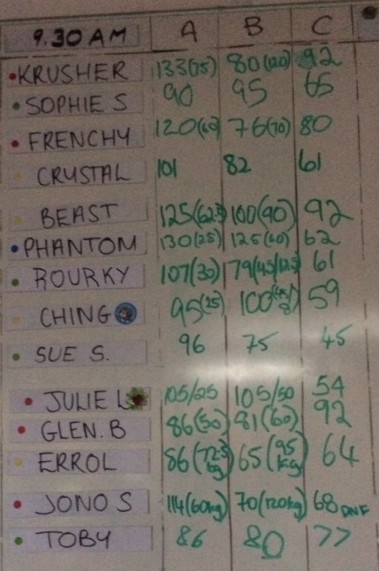 9.30 AM A B C
KRUSHER 133(75) 80(120) 92
SOPHIE S 90 95 65
FRENCHY 120(60) 76(70) 80
CRYSTAL 101 82 61
BEAST 125(62.5) 100(90) 92
PHANTOM 130(25) 125(60) 62
ROURKY 107(30) 61
CHING 95(25) 59
SUE S. 96 75 45
JULIE L 105/25 105/50 54
GLEN. B 86(50) 81(60) 92
ERROL 86(72.5kg) 65(95kg) 64
JONO S 114(60kg) 70(120kg) 68 DNF
TOBY 86 80 77